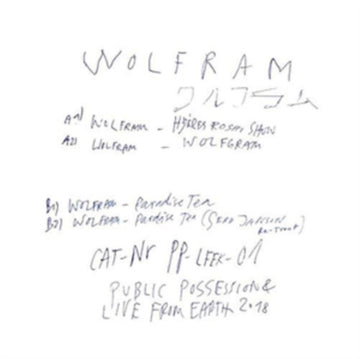 WOLFRAM
A1) WOLFRAM - HYÈRES ROSM SHOW
A2) WOLFRAM - WOLFGRAM
B1) WOLFRAM - Paradise Tea
B2) WOLFRAM - Paradise Tea (
CAT-Nr PP-LFEK-01
PUBLIC POSSESSION &
LIVE FROM EARTH 2018